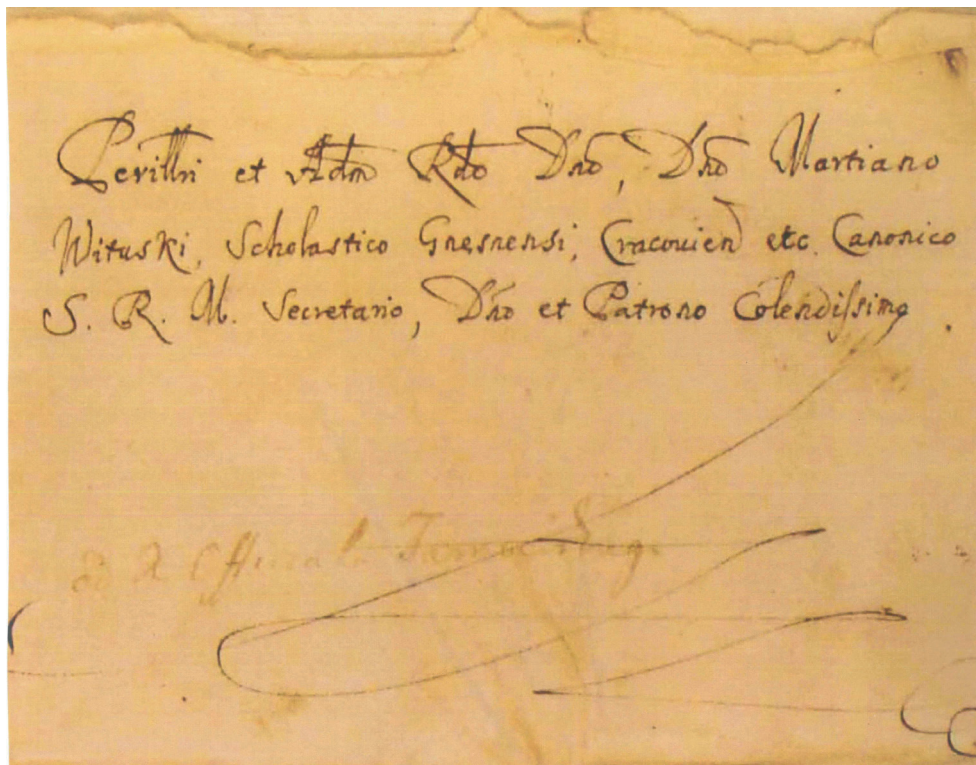 Perillri et Adm Rdo Dno, Dno Martiano
Wituski, Scholastico Gnesnensi, Cracovien etc. Canonico
S. R. M. Secretario, Dno et Patrono Colendissimo.